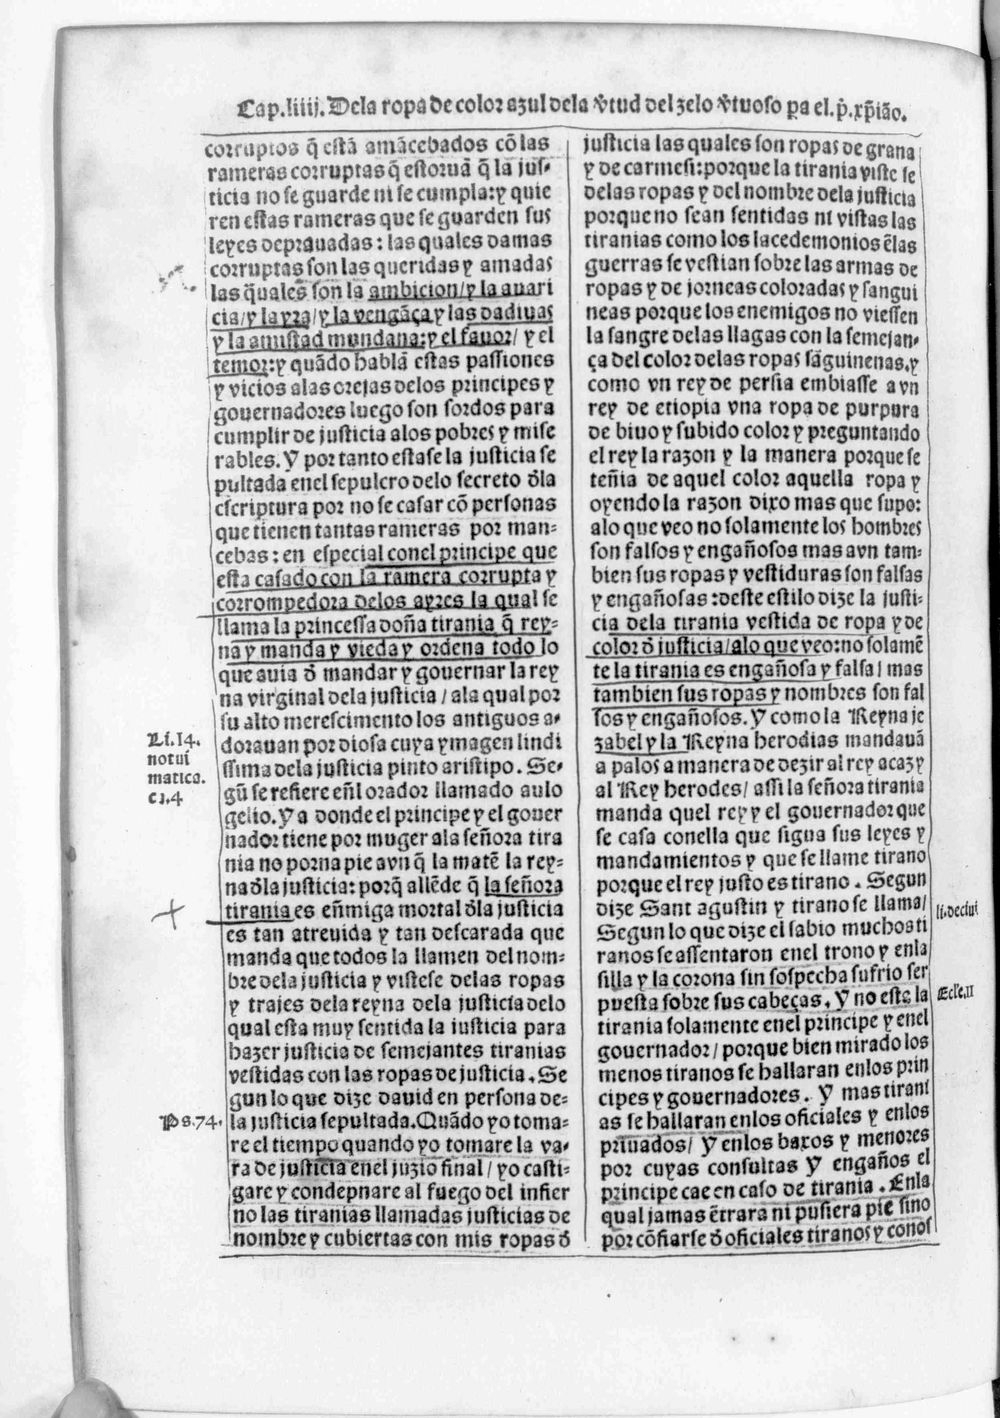 Cap.liiij. Dela ropa de color azul dela v̄tud del zelo v̄tuoso pa el.p̄.xp̄iāo.
corruptos q̄ estā amācebados cō las
rameras corruptas q̄ estoruā q̄ la jus-
ticia no se guarde ni se cumpla:y quie
ren estas rameras que se guarden sus
leyes deprauadas: las quales damas
corruptas son las queridas y amadas
las q̄uales son la ambicion/y la auari
cia/y la yra/y la vengāça y las dadiuas
y la amistad mundana:y el fauor/ y el
temor:y quādo hablā estas passiones
y vicios alas orejas delos principes y
gouernadores luego son sordos para
cumplir de justicia alos pobres y mise
rables. Y por tanto estase la justicia se
pultada enel sepulcro delo secreto d̄la
escriptura por no se casar cō personas
que tienen tantas rameras por man-
cebas: en especial conel principe que
esta casado con la ramera corrupta y
corrompedora delos ayres la qual se
llama la princessa doña tirania q̄ rey-
na y manda y vieda y ordena todo lo
que auia d̄ mandar y gouernar la rey
na virginal dela justicia / ala qual por
su alto merescimento los antiguos a-
dorauan por diosa cuya ymagen lindi
ssima dela justicia pinto aristipo. Se-
gū se refiere en̄l orador llamado aulo
gelio. Y a donde el principe y el gouer
nador tiene por muger ala señora tira
nia no porna pie avn q̄ la matē la rey-
na d̄la justicia: porq̄ allēde q̄ la señora
tirania es en̄miga mortal d̄la justicia
es tan atreuida y tan descarada que
manda que todos la llamen del nom-
bre dela justicia y vistese delas ropas
y trajes dela reyna dela justicia delo
qual esta muy sentida la iusticia para
hazer justicia de semejantes tiranias
vestidas con las ropas de justicia. Se
gun lo que dize dauid en persona de-
la justicia sepultada. Quādo yo toma-
re el tiempo quando yo tomare la va-
ra de justicia enel juzio final / yo casti-
gare y condepnare al fuego del infier
no las tiranias llamadas justicias de
nombre y cubiertas con mis ropas d̄
Li.14.
notui
matica.
c1.4
Ps.74.
justicia las quales son ropas de grana
y de carmesi:porque la tirania viste se
delas ropas y del nombre dela justicia
porque no sean sentidas ni vistas las
tiranias como los lacedemonios ēlas
guerras se vestian sobre las armas de
ropas y de jorneas coloradas y sangui
neas porque los enemigos no viessen
la sangre delas llagas con la semejan-
ça del color delas ropas sāguinenas.y
como vn rey de persia embiasse a vn
rey de etiopia vna ropa de purpura
de biuo y subido color y preguntando
el rey la razon y la manera porque se
teñia de aquel color aquella ropa y
oyendo la razon dixo mas que supo:
alo que veo no solamente los hombres
son falsos y engañosos mas avn tam-
bien sus ropas y vestiduras son falsas
y engañosas:deste estilo dize la justi-
cia dela tirania vestida de ropa y de
color d̄ justicia/alo que veo:no solamē
te la tirania es engañosa y falsa/ mas
tambien sus ropas y nombres son fal
sos y engañosos. Y como la Reyna je
zabel y la Reyna herodias mandauā
a palos a manera de dezir al rey acaz y
al Rey herodes/ assi la señora tirania
manda quel rey y el gouernador que
se casa conella que sigua sus leyes y
mandamientos y que se llame tirano
porque el rey justo es tirano. Segun
dize Sant agustin y tirano se llama/
Segun lo que dize el sabio muchos ti
ranos se assentaron enel trono y enla
silla y la corona sin sospecha sufrio ser
puesta sobre sus cabeças. Y no este la
tirania solamente enel principe y enel
gouernador/ porque bien mirado los
menos tiranos se hallaran enlos prin
cipes y gouernadores. Y mas tirani
as se hallaran enlos oficiales y enlos
priuados/ Y enlos baxos y menores
por cuyas consultas Y engaños el
principe cae en caso de tirania. Enla
qual jamas ētrara ni pusiera pie sino
por cōfiarse d̄ oficiales tiranos y conos
li.deciui
Ecl'e.11